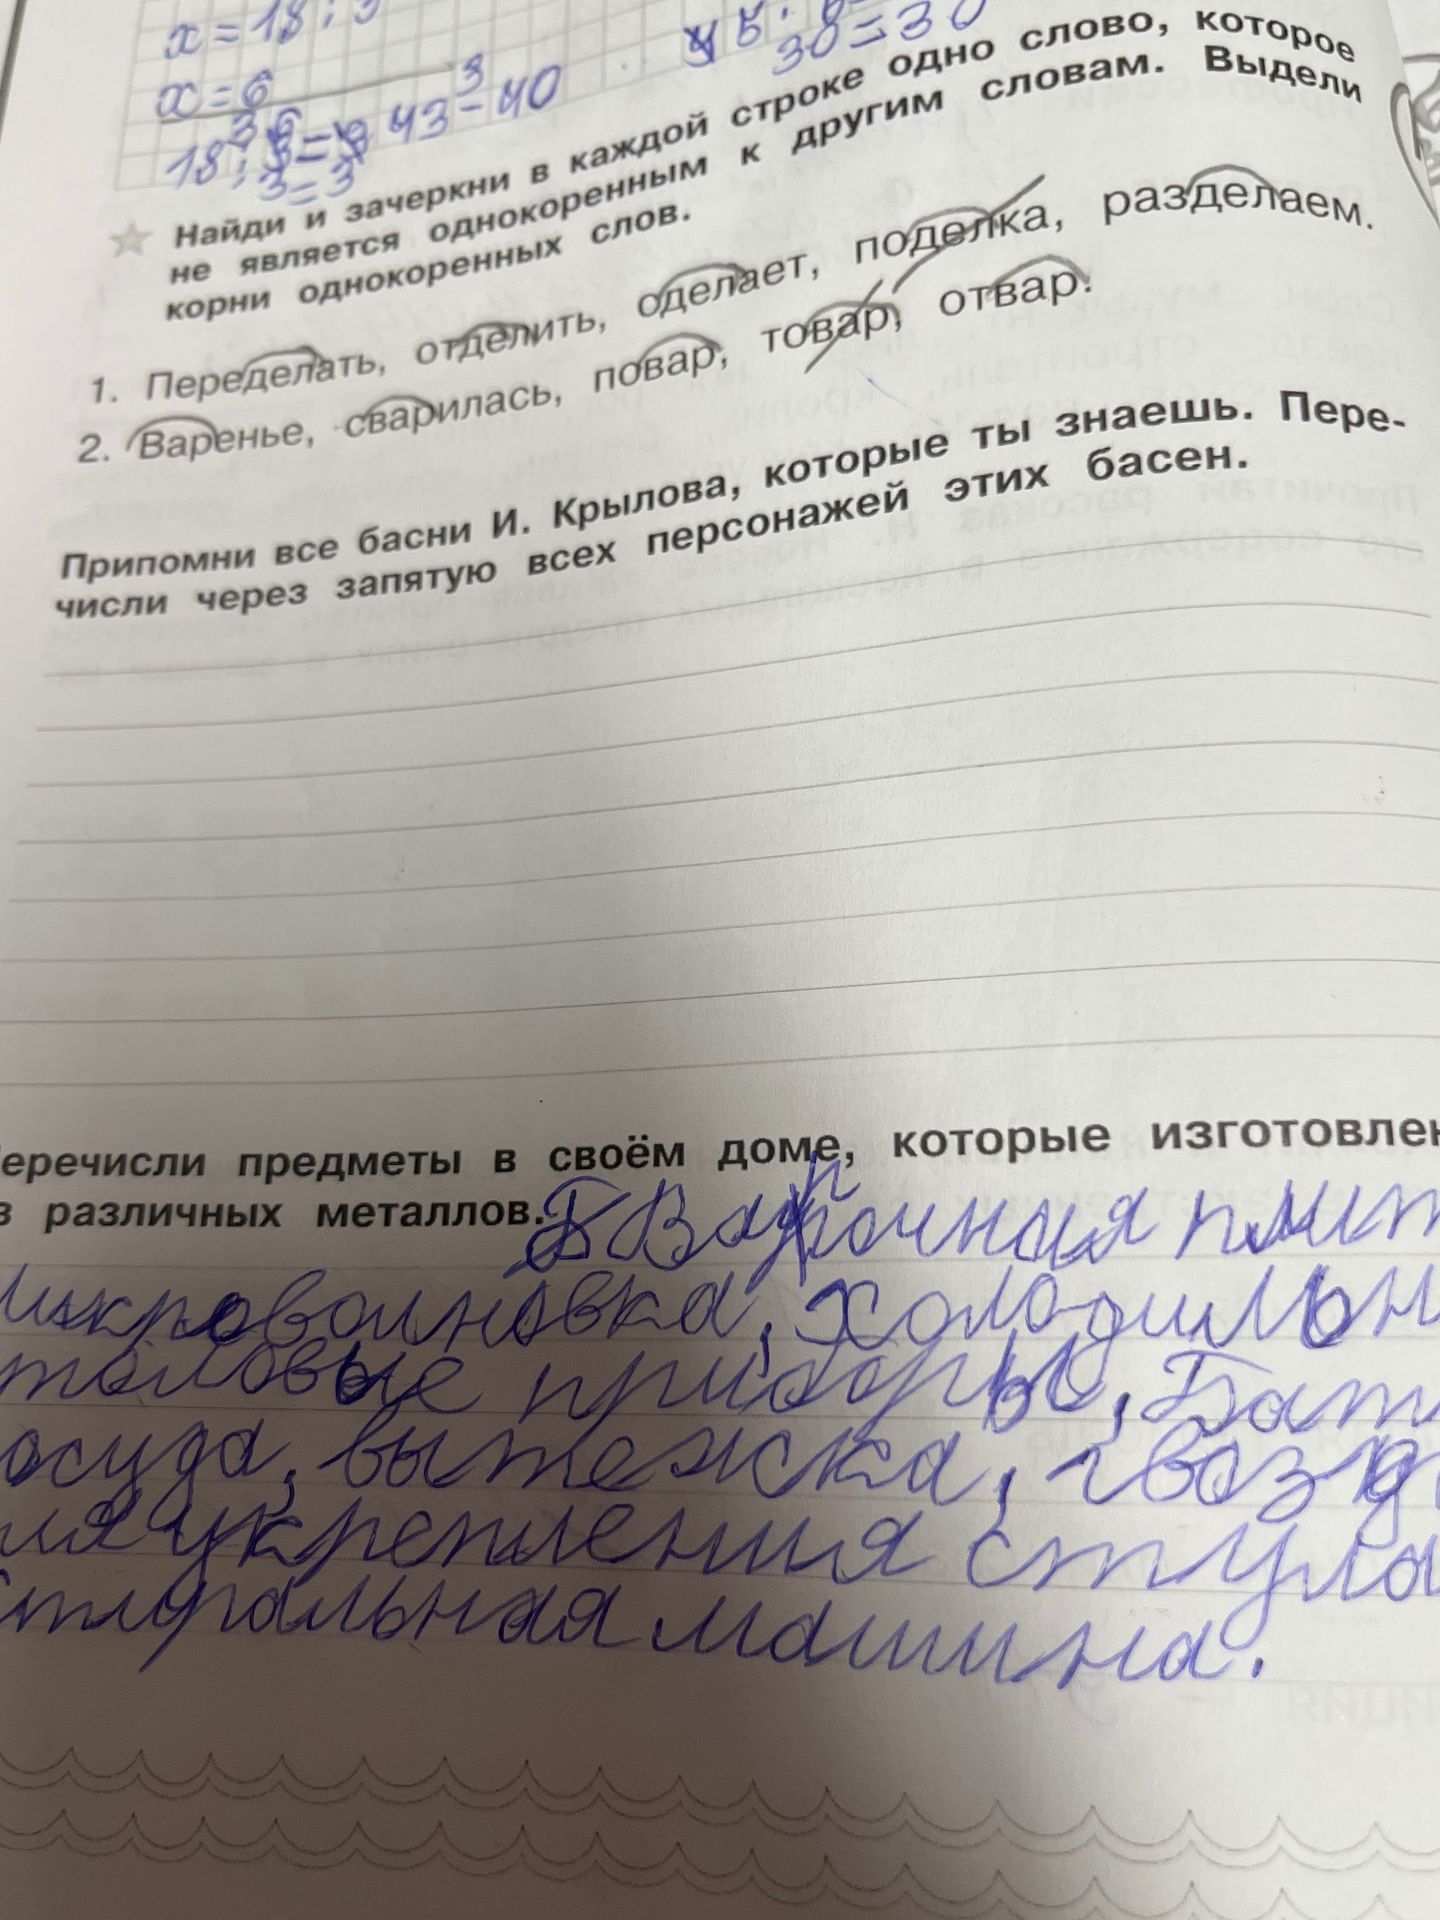 x = 18 : 3
x = 6
43 - 40
38 = 30
Найди и зачеркни в каждой строке одно слово, которое
не является однокоренным к другим словам. Выдели
корни однокоренных слов.
1. Переделать, отделить, оделает, поделка, разделаем.
2. Варенье, сварилась, повар, товар, отвар.
Припомни все басни И. Крылова, которые ты знаешь. Пере-
числи через запятую всех персонажей этих басен.
еречисли предметы в своём доме, которые изготовлен
з различных металлов. Варочная плит
икроволновка, холодильн
толовые приборы, Бат
осуда, вытежска, гвозд
ля укрепления стула
стиральная машина.